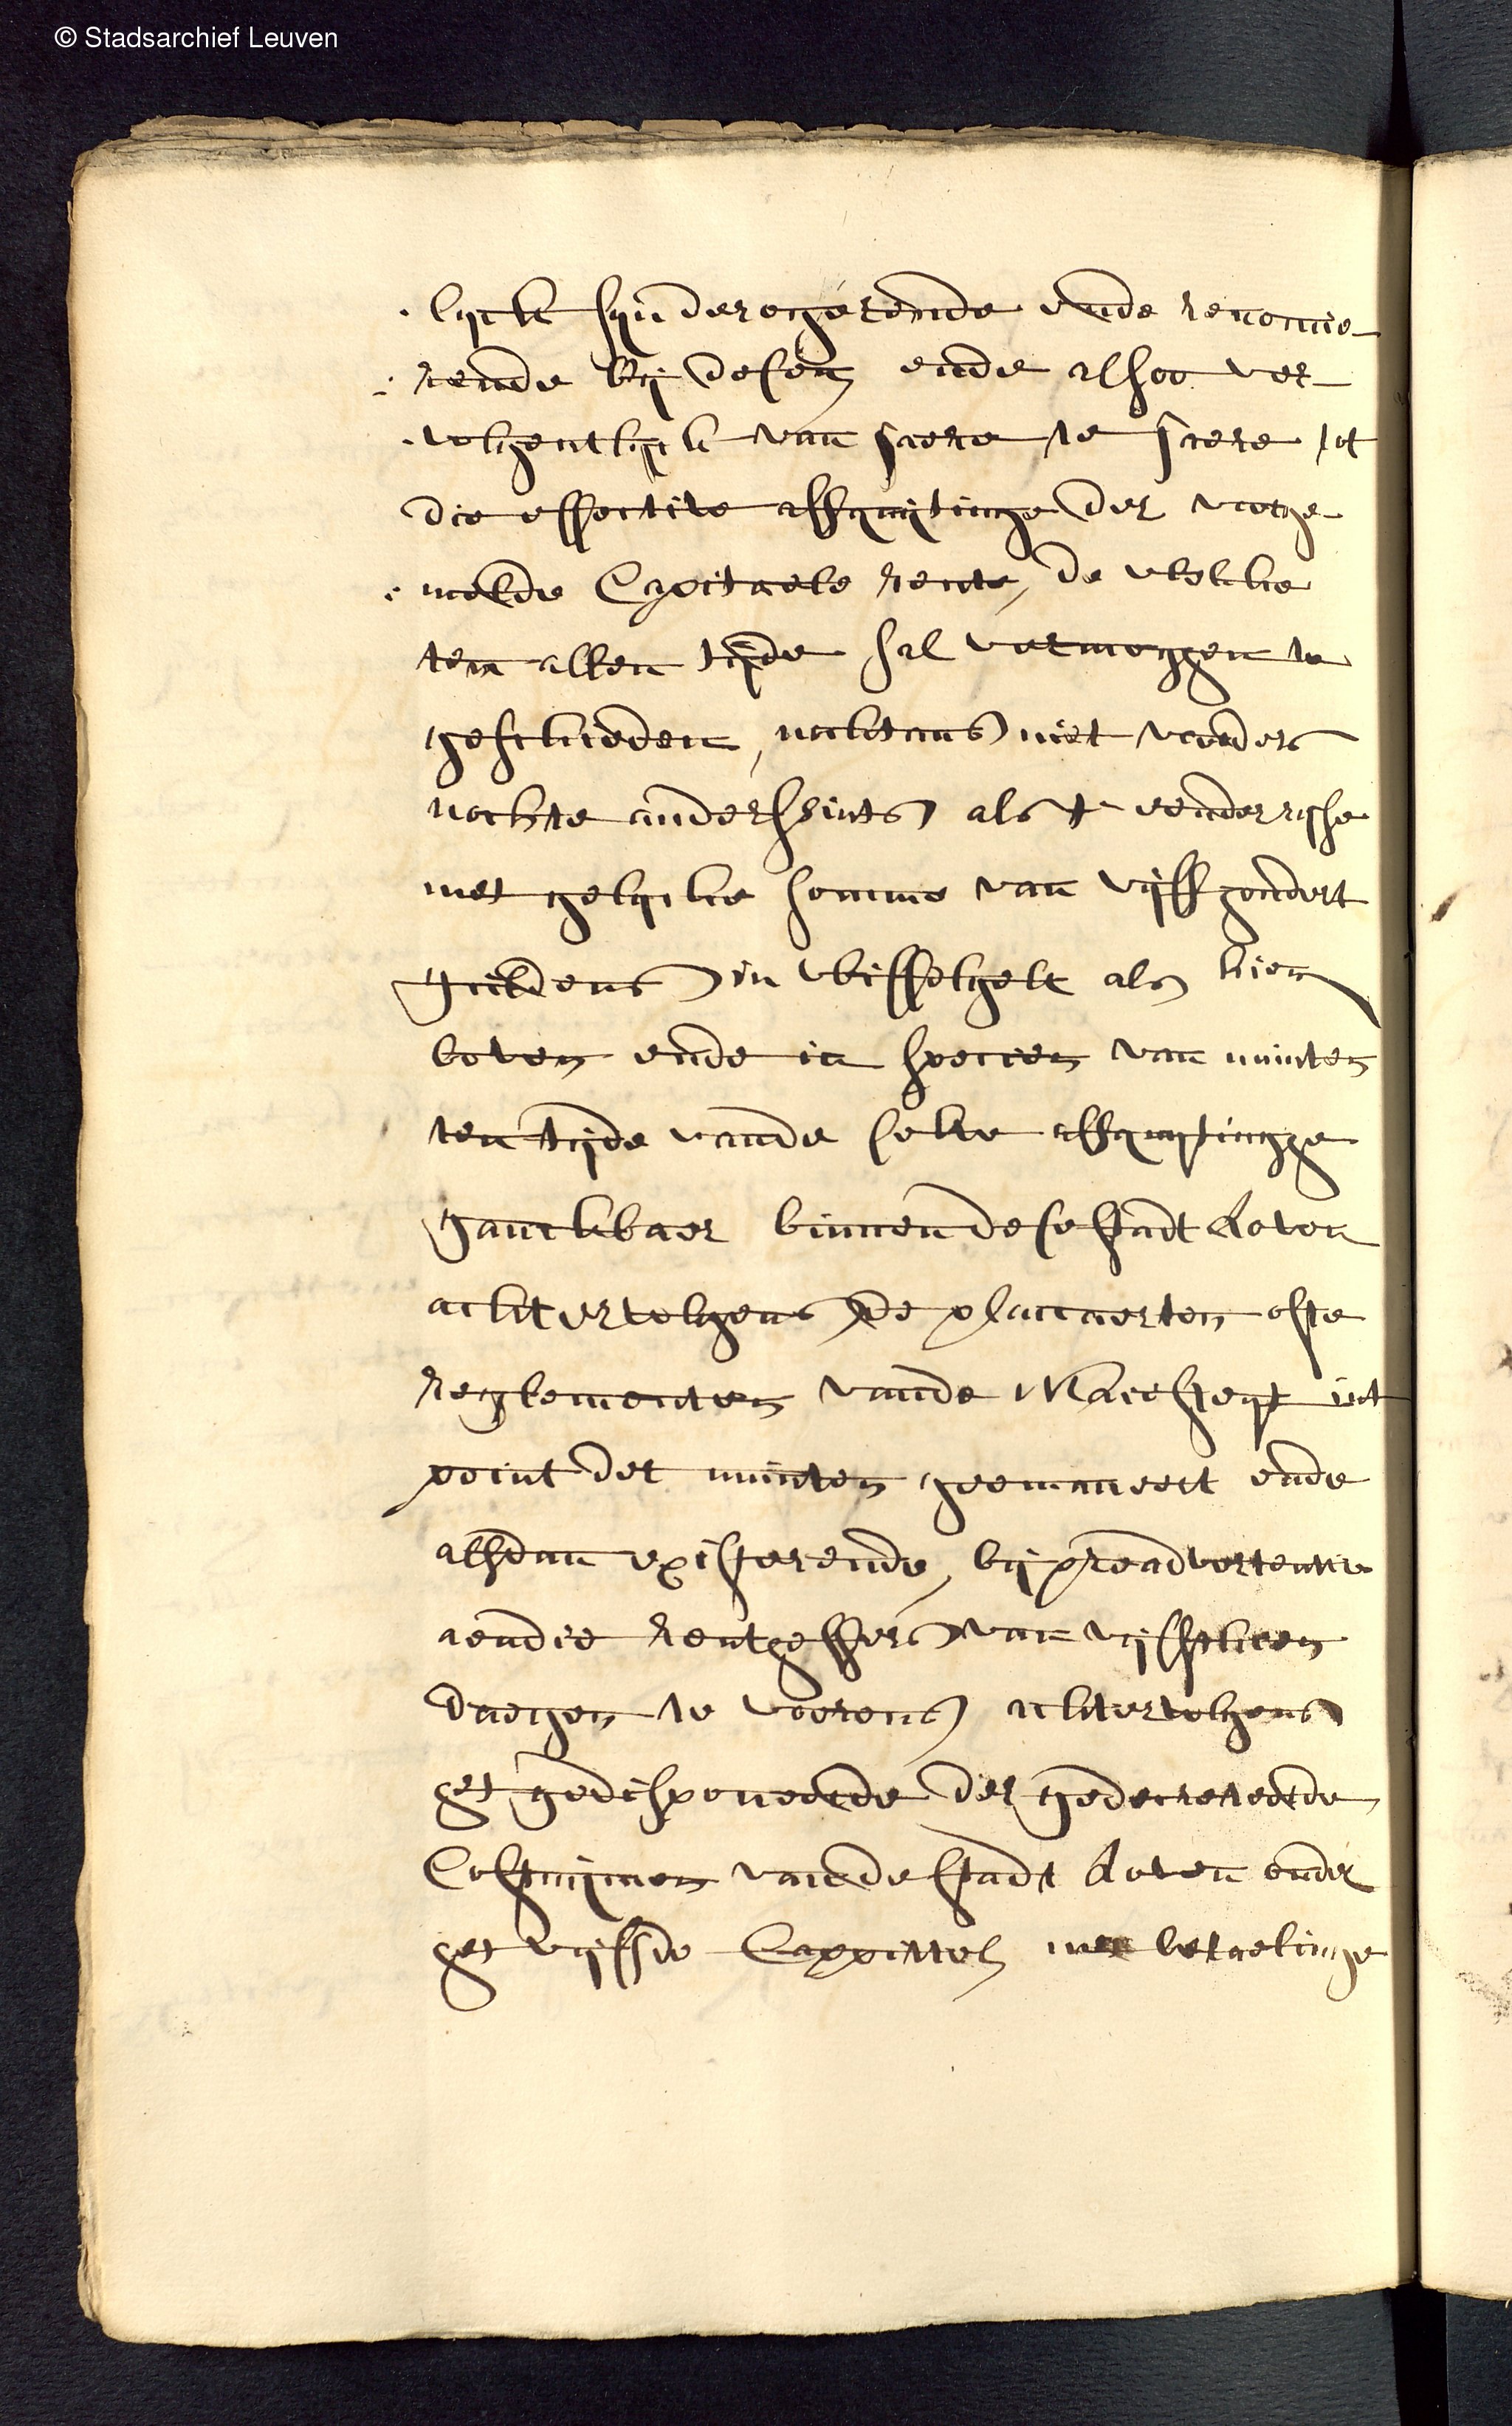 © Stadsarchief Leuven
lyck syn derogerende ende renoncie-
rende by desen ende alsoo ver-
volgentlyck van jaere te jaere tot
die effective affquytinge der voorge-
melde Capitaele rente, de welcke
ten allen tyde sal vermoegen te
geschieden, nochtans niet voorders
nochte anderssints als t'
met gelycke somme van vyffhondert
guldens in wisselgelt als hier
boven ende in specien van munten
ten tyde vande selve affquytingge
ganckbaer binnen dese stadt Loven
achtervolgens de placcaerten ofte
reglementen vande Maesteyt int
point der munten geemaneert ende
alsdan existerende, by preadvertentie
aen die rentgeffers van vyfthien
daegen te voorens achtervolgens
het gedisponeerde der gedecreteerde
Costuymen vande stadt Loven onder
het vyffde Cappittel met betaelinge